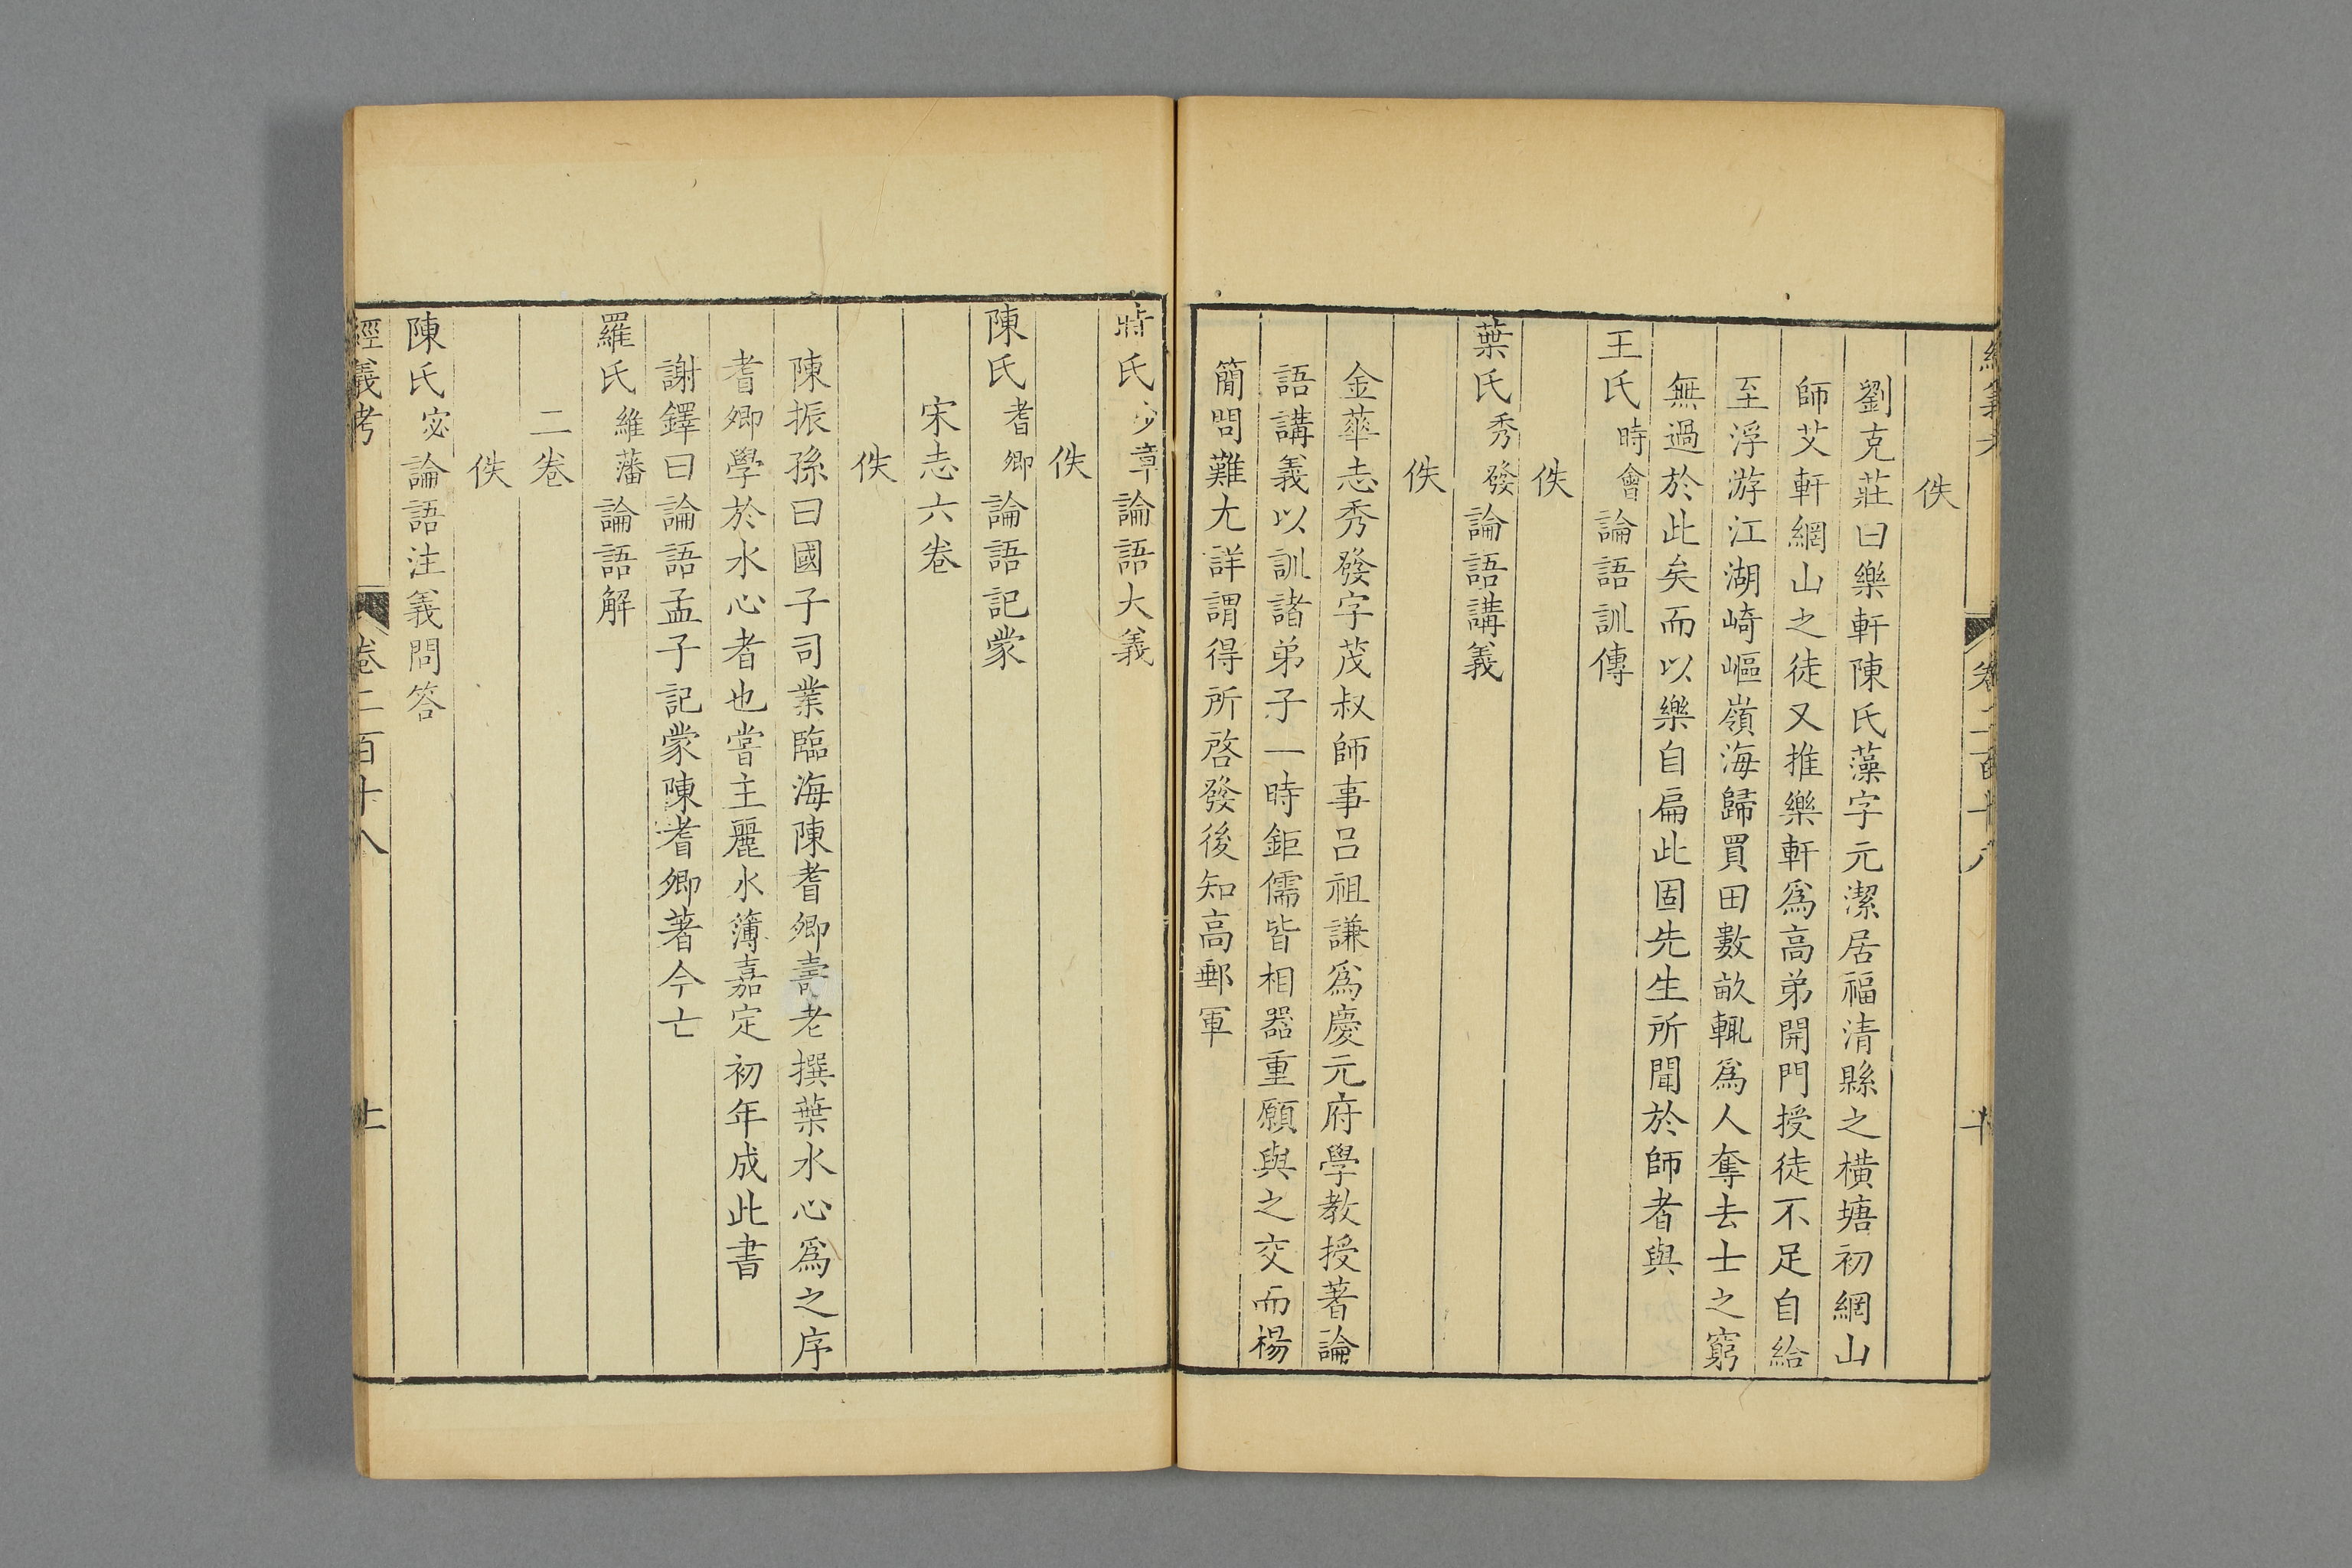 經義考 卷二百十八
佚
劉克莊曰樂軒陳氏藻字元潔居福清縣之橫塘初網山
師艾軒網山之徒又推樂軒爲高弟開門授徒不足自給
至浮游江湖崎嶇嶺海歸買田數畝輒爲人奪去士之窮
無過於此矣而以樂自扁此固先生所聞於師者與
王氏時會論語訓傳
佚
葉氏秀發論語講義
佚
金華志秀發字茂叔師事呂祖謙爲慶元府學教授著論
語講義以訓諸弟子一時鉅儒皆相器重願與之交而楊
簡問難尢詳謂得所啓發後知高郵軍
蔣氏少章論語大義
佚
陳氏耆卿論語記蒙
宋志六卷
佚
陳振孫曰國子司業臨海陳耆卿壽老撰葉水心爲之序
耆卿學於水心者也嘗主麗水簿嘉定初年成此書
謝鐸曰論語孟子記蒙陳耆卿著今亡
羅氏維藩論語解
二卷
佚
陳氏宓論語注義問答
經義考 卷二百十八